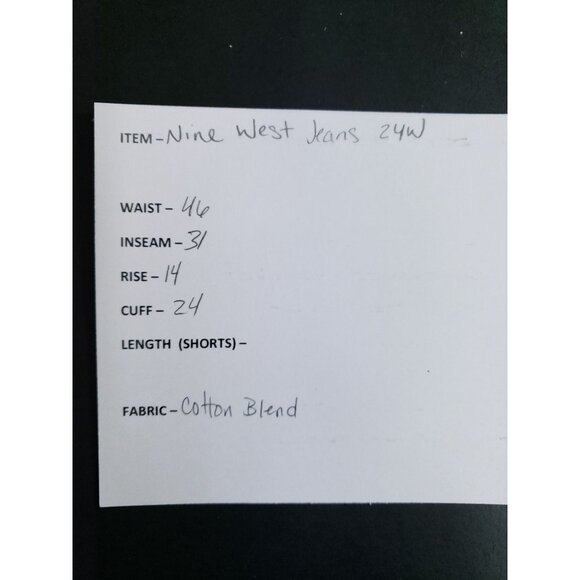 ITEM – Nine West Jeans 24W
WAIST – 46
INSEAM – 31
RISE – 14
CUFF – 24
LENGTH (SHORTS) –
FABRIC – Cotton Blend